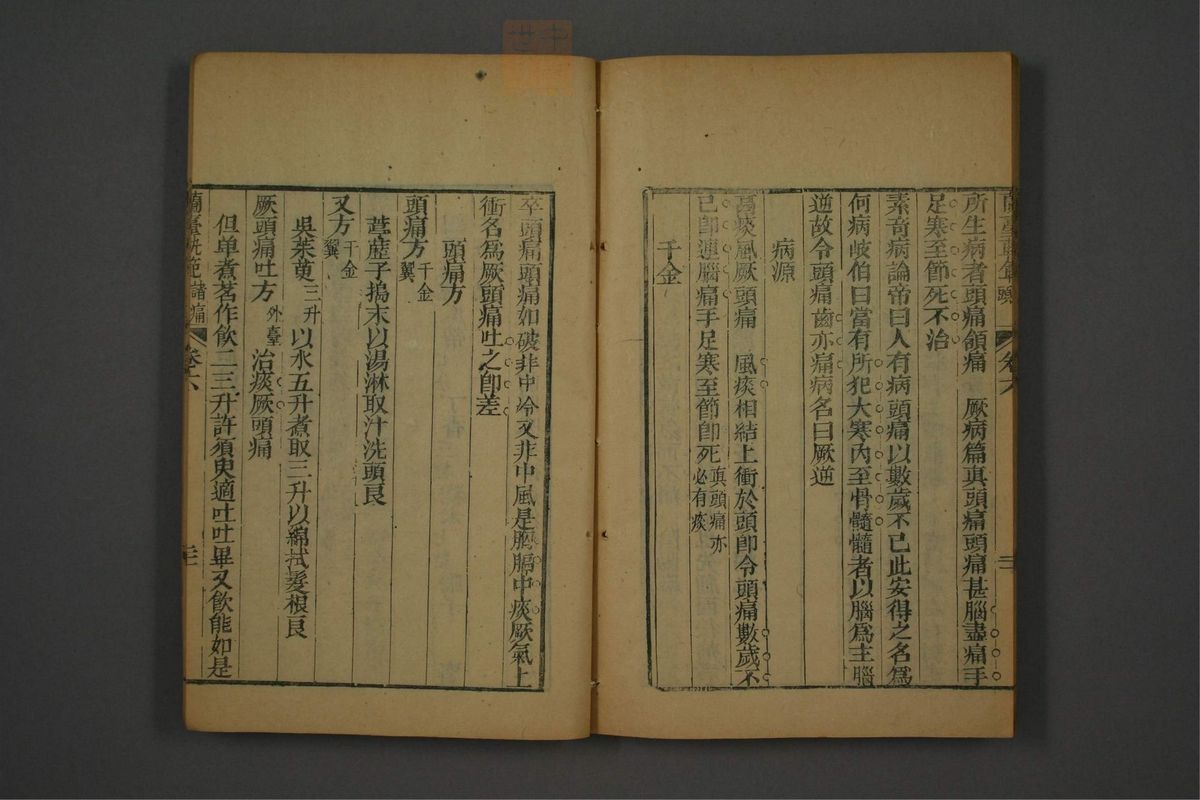 所生病者頭痛頷痛　厥病篇真頭痛頭痛甚腦盡痛手
足寒至節死不治
素奇病論帝曰人有病頭痛以數歲不已此安得之名爲
何病岐伯曰當有所犯大寒內至骨髓髓者以腦爲主腦
逆故令頭痛齒亦痛病名曰厥逆
病源
鬲痰風厥頭痛　風痰相結上衝於頭卽令頭痛數歲不
已卽連腦痛手足寒至節卽死真頭痛亦必有痰
千金
卒頭痛頭痛如破非中冷又非中風是胸膈中痰厥氣上
衝名爲厥頭痛吐之卽差
頭痛方
頭痛方千金翼
葶藶子搗末以湯淋取汁洗頭良
又方千金翼
吳茱萸三升以水五升煮取三升以綿拭髮根良
厥頭痛吐方外臺　治痰厥頭痛
但单煮茗作飲二三升許須臾適吐吐畢又飲能如是
蘭臺軌範 卷六